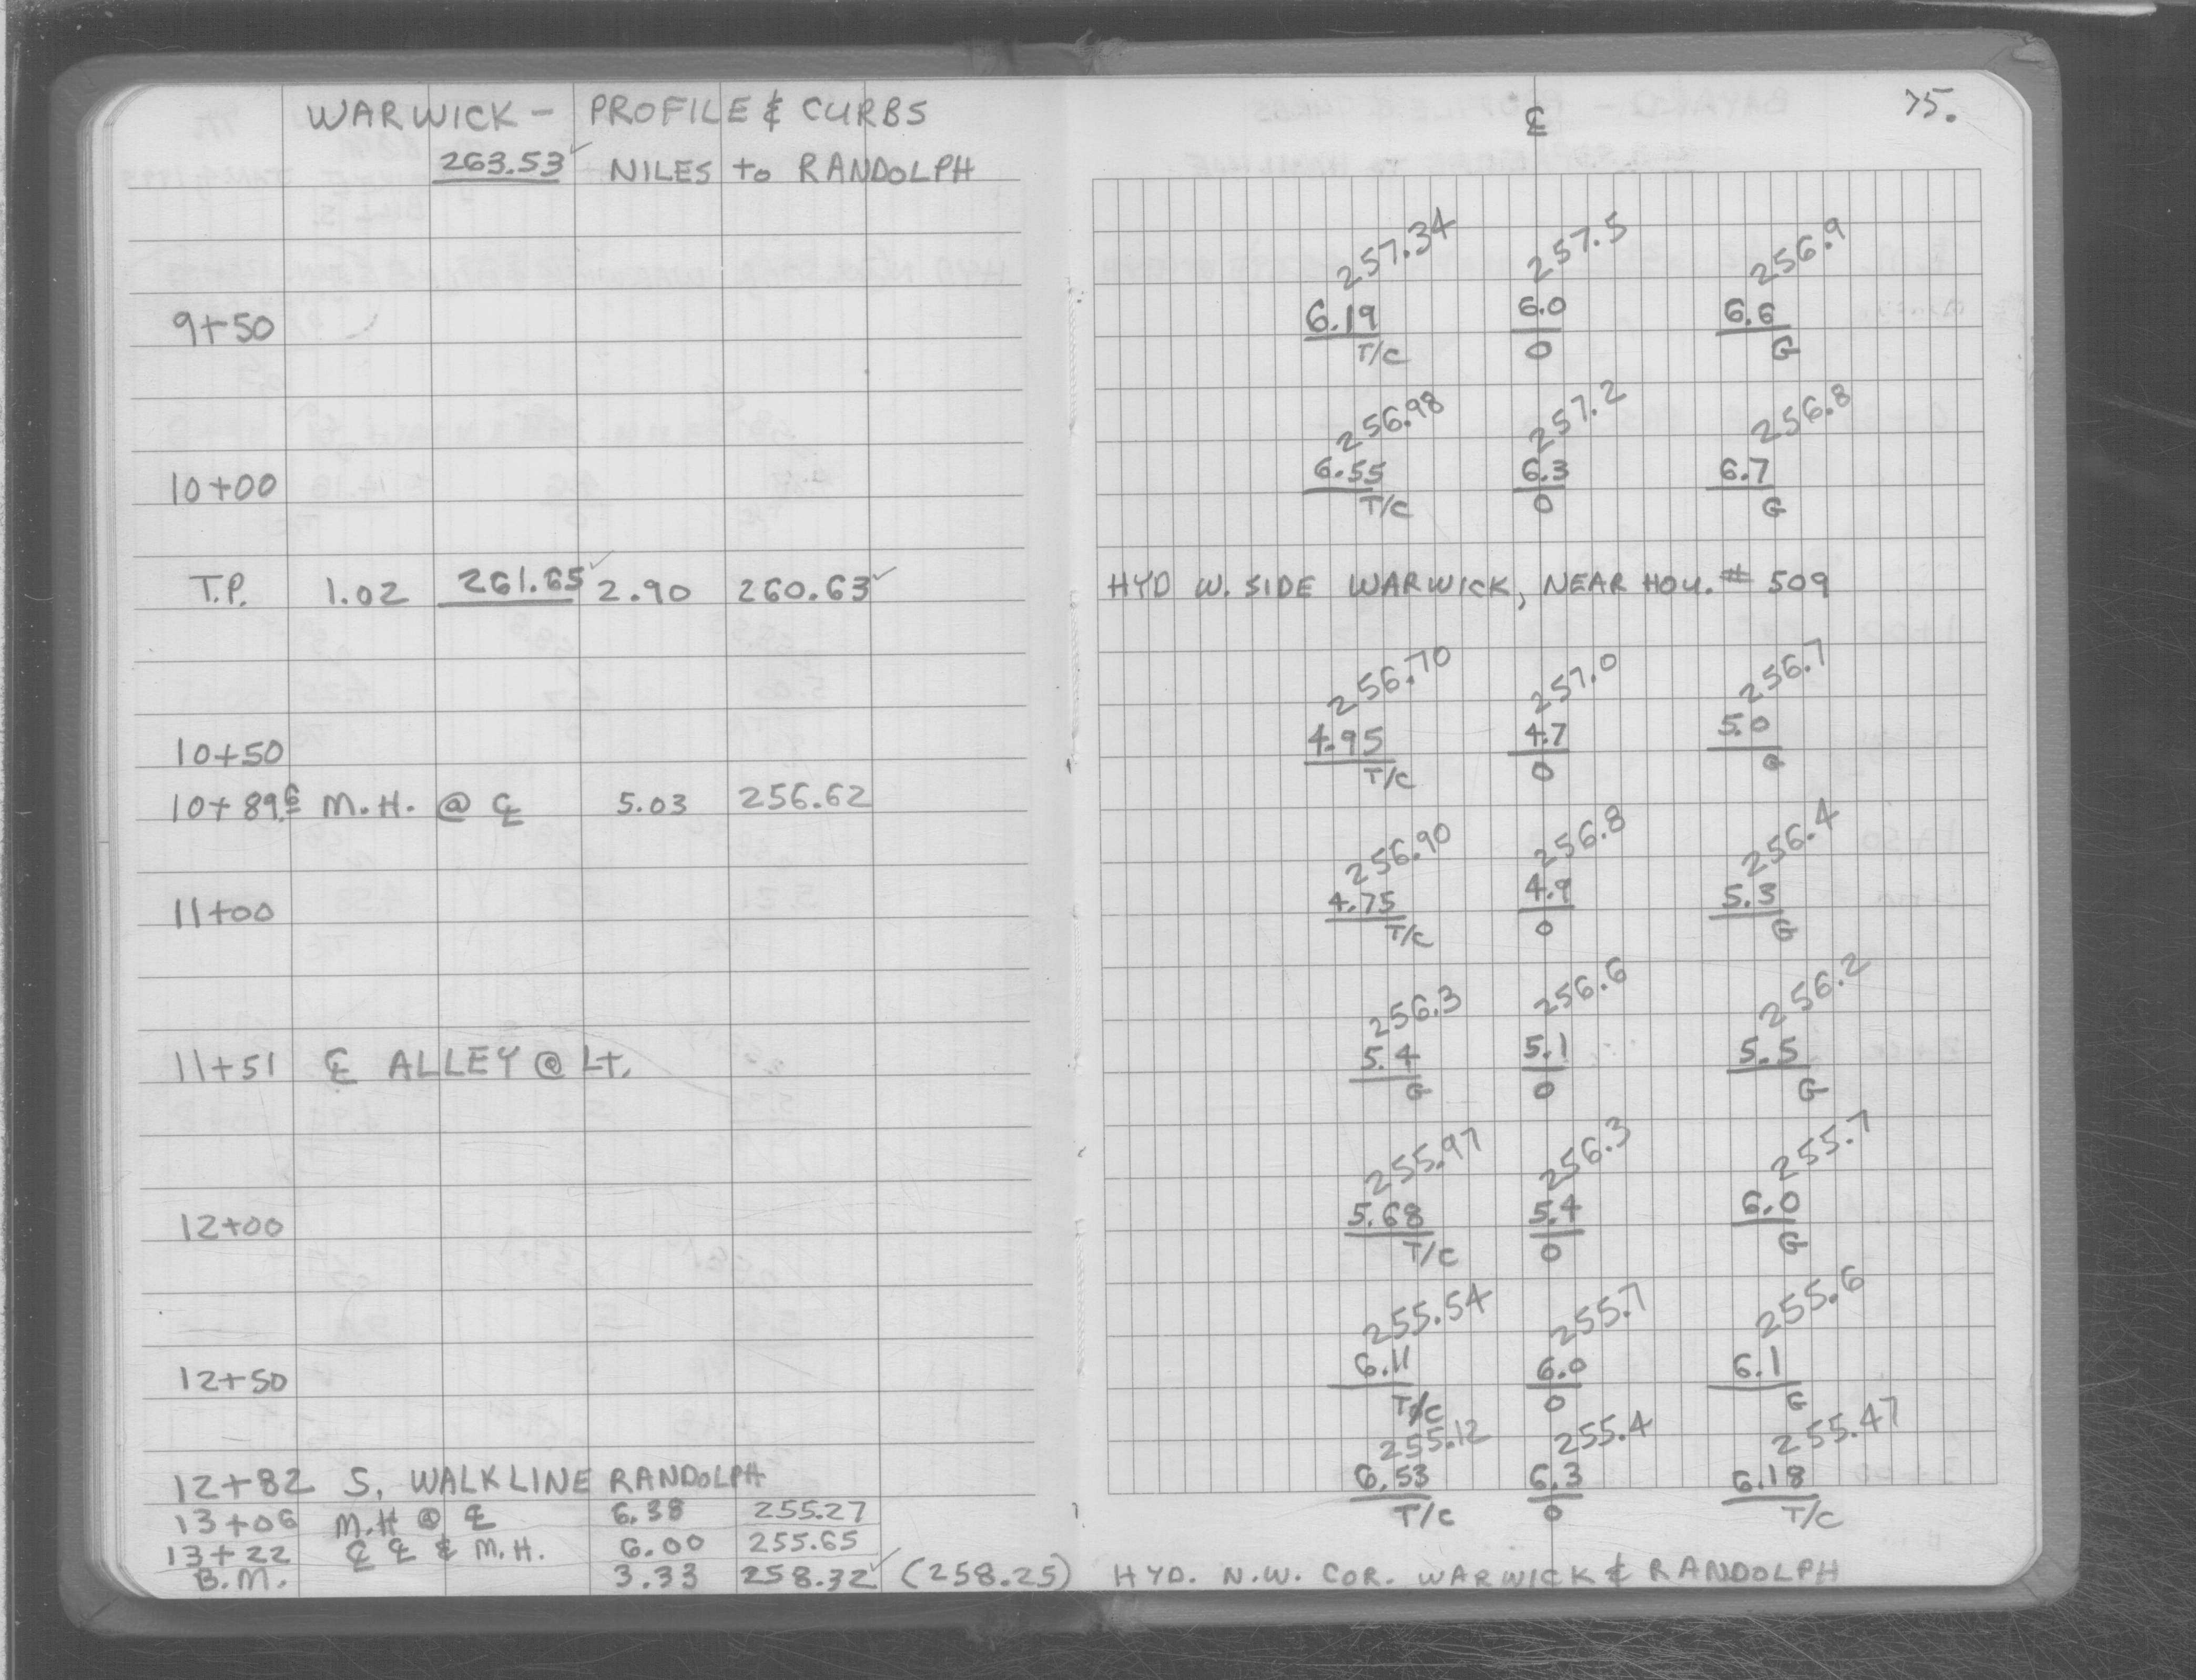 WARWICK — PROFILE & CURBS
263.53✓ NILES to RANDOLPH
9+50
10+00
T.P. 1.02 261.65✓ 2.90 260.63✓
10+50
10+89.6 M.H. @ ℄ 5.03 256.62
11+00
11+51 ℄ ALLEY @ LT.
12+00
12+50
12+82 S. WALKLINE RANDOLPH
13+06 M.H @ ℄ 6.38 255.27
13+22 ℄ ℄ & M.H. 6.00 255.65
B.M. 3.33 258.32✓ (258.25)
℄ 75.
257.34 257.5 256.9
6.19 6.0 6.6
T/C 0 G
256.98 257.2 256.8
6.55 6.3 6.7
T/C 0 G
HYD W. SIDE WARWICK, NEAR HOU. # 509
256.70 257.0 256.7
4.95 4.7 5.0
T/C 0 G
256.90 256.8 256.4
4.75 4.9 5.3
T/C 0 G
256.3 256.6 256.2
5.4 5.1 5.5
G 0 G
255.97 256.3 255.7
5.68 5.4 6.0
T/C 0 G
255.54 255.7 255.6
6.11 6.0 6.1
T/C 0 G
255.12 255.4 255.47
6.53 6.3 6.18
T/C 0 T/C
HYD. N.W. COR. WARWICK & RANDOLPH